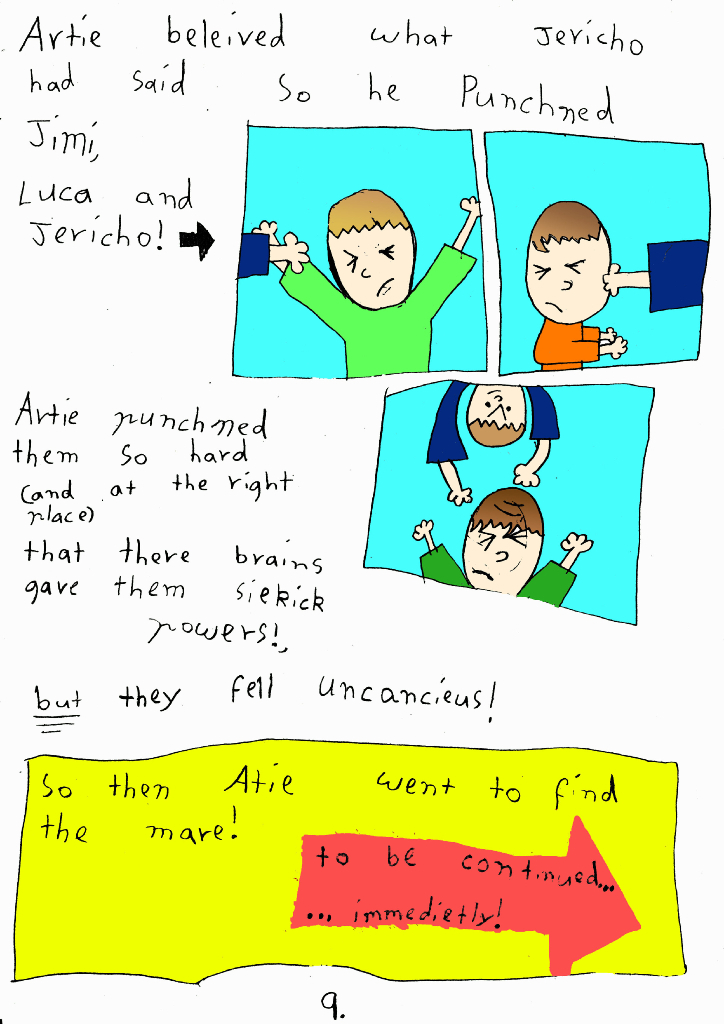 Artie beleived what Jericho
had said so he Punchned
Jimi,
Luca and
Jericho!
Artie punchned
them so hard
(and at the right
place)
that there brains
gave them siekick
powers!,
but they fell uncancieus!
So then Atie went to find
the mare!
to be continued...
... immedietly!
9.